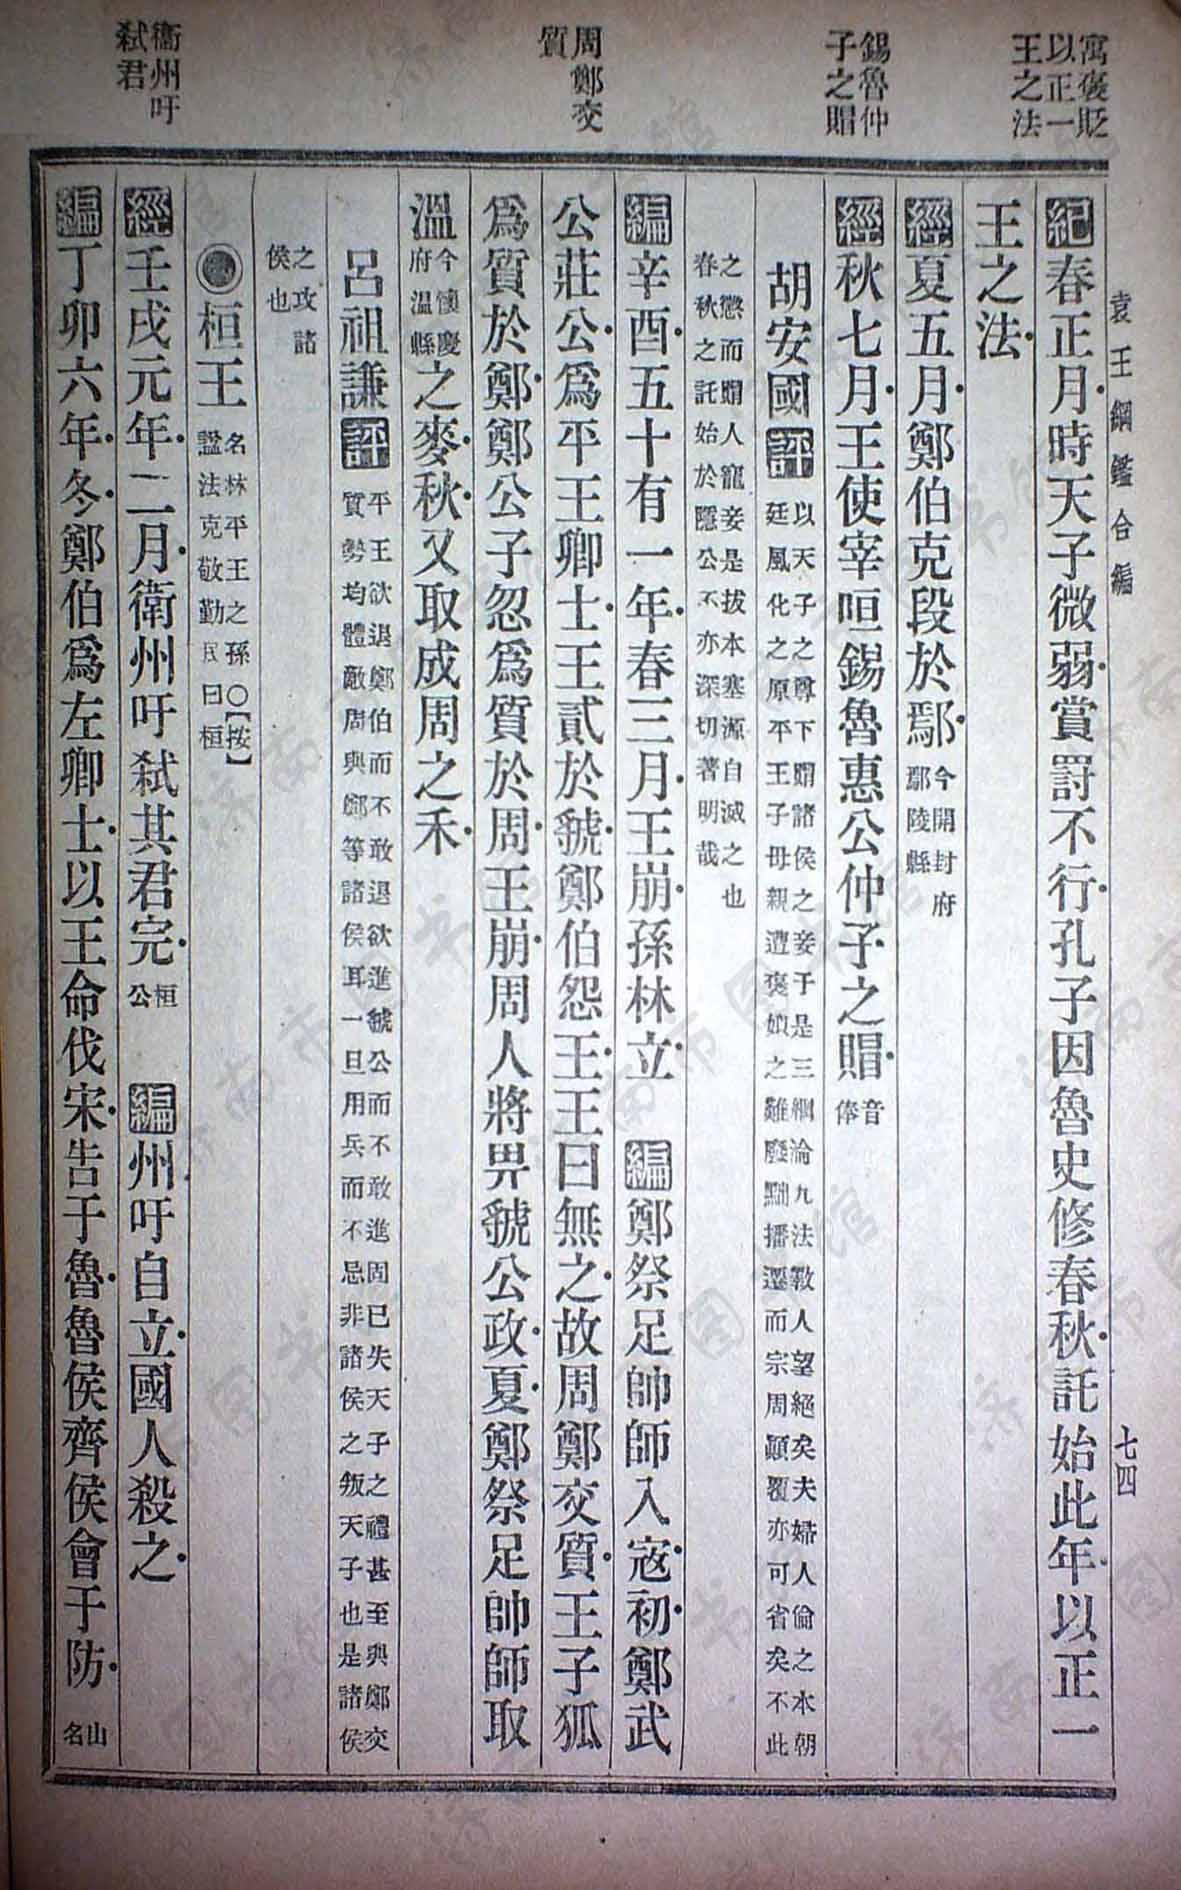 寓褒貶
以正一
王之法
錫魯仲
子之賵
周鄭交
質
衞州吁
弒君
袁王綱鑑合編
七四
紀春正月時天子微弱賞罰不行孔子因魯史修春秋託始此年以正一
王之法
經夏五月鄭伯克段於鄢今開封府鄢陵縣
經秋七月王使宰咺錫魯惠公仲子之賵音俸
胡安國評以天子之尊下賵諸侯之妾于是三綱淪九法斁人望絕矣夫婦人倫之本朝
廷風化之原平王子母親遭褒姒之難廢黜播遷而宗周顛覆亦可省矣不此
之懲而賵人寵妾是拔本塞源自滅之也
春秋之託始於隱公不亦深切著明哉
編辛酉五十有一年春三月王崩孫林立 編鄭祭足帥師入寇初鄭武
公莊公爲平王卿士王貳於虢鄭伯怨王王曰無之故周鄭交質王子狐
爲質於鄭鄭公子忽爲質於周王崩周人將畀虢公政夏鄭祭足帥師取
溫今懷慶府溫縣之麥秋又取成周之禾
呂祖謙評平王欲退鄭伯而不敢退欲進虢公而不敢進固已失天子之禮甚至與鄭交
質勢均體敵周與鄭等諸侯耳一旦用兵而不忌非諸侯之叛天子也是諸侯
之攻諸
侯也
桓王名林平王之孫〇【按】
諡法克敬勤民曰桓
經壬戌元年二月衛州吁弒其君完桓公 編州吁自立國人殺之
編丁卯六年冬鄭伯爲左卿士以王命伐宋告于魯魯侯齊侯會于防山名